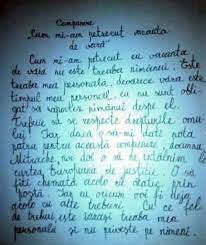 Compunere
„Cum mi-am petrecut vacanta
de vară"
Cum mi-am petrecut eu vacanta
de vara nu este treaba nimănui. Este
treaba mea personală, deoarece vara este
timpul meu personal, eu nu sunt obli-
gat să raportez nimănui despre el.
Trebuie să se respecte drepturile omu-
lui. Iar daca o să-mi dati nota
patru pentru această compunere, doamna
Mitrache, noi doi o să ne întâlnim la
curtea europeană de justitie. O să
fiti chemată acolo cu citatie prin
postă. Iar eu oricum voi fi deja
acolo cu alte treburi. Cu ce fel
de treburi este iarasi treaba mea
personală si nu priveste pe nimeni.